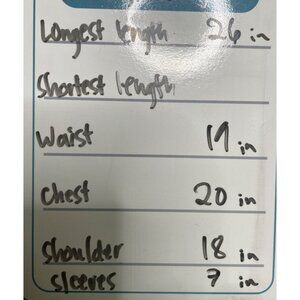 Longest length 26 in
Shortest length
Waist 19 in
Chest 20 in
Shoulder 18 in
Sleeves 7 in